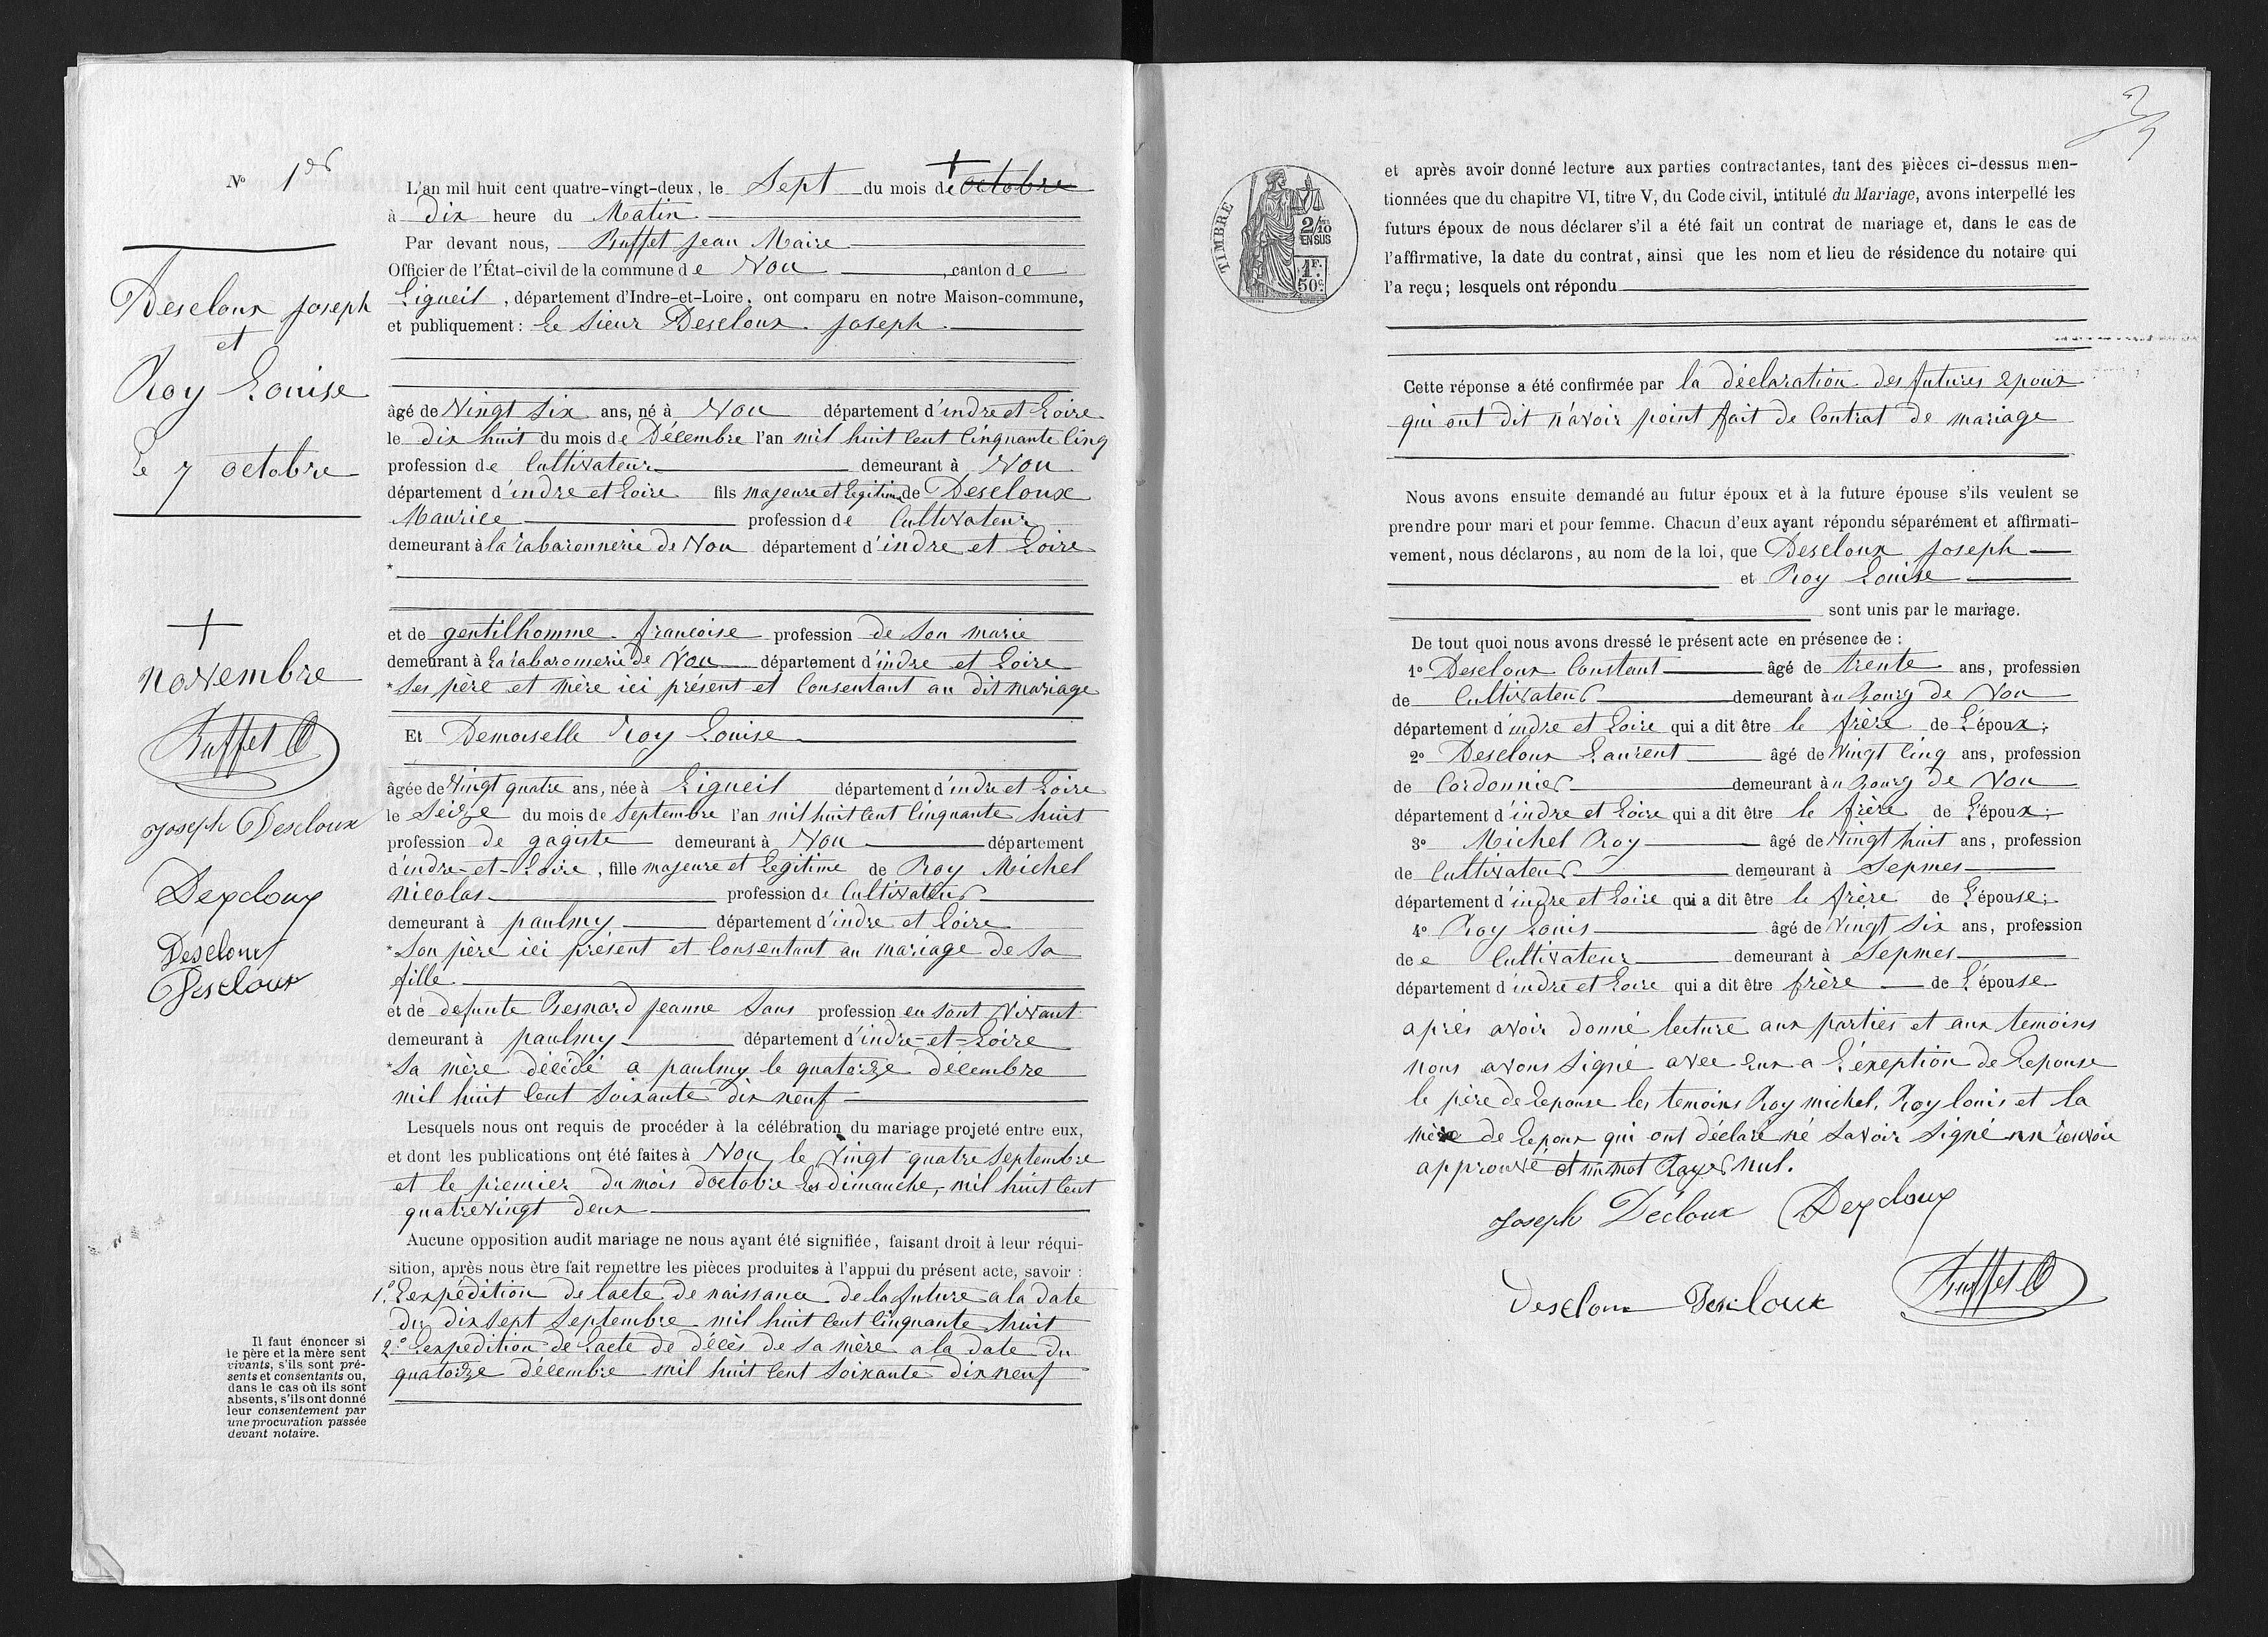 Nº 1er
Descloux Joseph
et
Roy Louise
Le 7 octobre
+
novembre
Buffet
Joseph Descloux
Dexcloux
Descloux
Descloux
Il faut énoncer si
le père et la mère sent
vivants, s'ils sont pré-
sents et consentants ou,
dans le cas où ils sont
absents, s'ils ont donné
leur consentement par
une procuration passée
devant notaire.
L'an mil huit cent quatre-vingt-deux, le Sept du mois de + octobre
à Dix heure du Matin
Par devant nous, Buffet Jean Maire
Officier de l'État-civil de la commune de Vou, canton de
Ligueil, département d'Indre-et-Loire, ont comparu en notre Maison-commune,
et publiquement: Le Sieur Descloux Joseph
âgé de Vingt Six ans, né à Vou département d'indre et Loire
le dix huit du mois de Décembre l'an mil huit Cent Cinquante Cinq
profession de Cultivateur demeurant à Vou
département d'indre et Loire fils majeure et Legitime de Descloux
Maurice profession de Cultivateur
demeurant à la rabaronnerie de Vou département d'indre et Loire
*
et de gentilhomme francoise profession de Son marie
demeurant à La rabaronnerie de Vou département d'indre et Loire
* Ses père et mère ici présent et Consentant au dit mariage
Et Demoiselle Roy Louise
âgée de Vingt quatre ans, née à Ligueil département d'indre et Loire
le Seize du mois de Septembre l'an mil huit Cent Cinquante huit
profession de gagiste demeurant à Vou département
d'indre-et-Loire, fille majeure et Legitime de Roy Michel
Nicolas profession de Cultivateur
demeurant à paulmy département d'indre et Loire
* Son père ici présent et Consentant au mariage de Sa
fille
et de defunte Besnard Jeanne Sans profession en Sont Vivant
demeurant à paulmy département d'indre-et-Loire
* Sa mère décédé a paulmy le quatorze décembre
mil huit Cent Soixante dix neuf
Lesquels nous ont requis de procéder à la célébration du mariage projeté entre eux,
et dont les publications ont été faites à Vou le Vingt quatre Septembre
et le premier du mois d'octobre Les dimanche, mil huit Cent
quatre Vingt deux
Aucune opposition audit mariage ne nous ayant été signifiée, faisant droit à leur réqui-
sition, après nous être fait remettre les pièces produites à l'appui du présent acte, savoir :
1.º L'expédition de l'acte de naissance de la future a la date
du dix Sept Septembre mil huit Cent Cinquante huit
2.º L'expedition de L'acte de décès de Sa mère a la date du
quatorze décembre mil huit Cent Soixante dix neuf
TIMBRE
2/10 EN SUS
1F. 50c.
et après avoir donné lecture aux parties contractantes, tant des pièces ci-dessus men-
tionnées que du chapitre VI, titre V, du Code civil, intitulé du Mariage, avons interpellé les
futurs époux de nous déclarer s'il a été fait un contrat de mariage et, dans le cas de
l'affirmative, la date du contrat, ainsi que les nom et lieu de résidence du notaire qui
l'a reçu; lesquels ont répondu
Cette réponse a été confirmée par la déclaration des futures epoux
qui ont dit n'avoir point fait de Contrat de mariage
Nous avons ensuite demandé au futur époux et à la future épouse s'ils veulent se
prendre pour mari et pour femme. Chacun d'eux ayant répondu séparément et affirmati-
vement, nous déclarons, au nom de la loi, que Descloux Joseph
et Roy Louise
sont unis par le mariage.
De tout quoi nous avons dressé le présent acte en présence de :
1º Descloux Constant âgé de trente ans, profession
de Cultivateur demeurant à u Bourg de Vou
département d'indre et Loire qui a dit être le frère de L'époux;
2º Descloux Laurent âgé de Vingt Cinq ans, profession
de Cordonnier demeurant à u Bourg de Vou
département d'indre et Loire qui a dit être le frère de L'époux;
3º Michel Roy âgé de Vingt huit ans, profession
de Cultivateur demeurant à Sepmes
département d'indre et Loire qui a dit être le frère de L'épouse;
4º Roy Louis âgé de Vingt Six ans, profession
de e Cultivateur demeurant à Sepmes
département d'indre et Loire qui a dit être frère de L'épouse
après avoir donné lecture aux parties et aux temoins
nous avons Signé avec Eux a L'éxeption de Lepouse
le père de Lepouse les temoins Roy michel, Roy louis et la
mère de Lepoux qui ont déclaré né Savoir Signé un renvoie
approuvé et un mot Rayer nul.
Joseph Décloux Dexcloux
Descloux Descloux Buffet